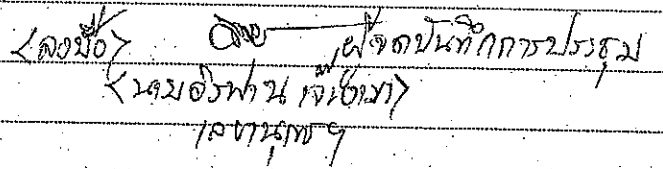 <ลงชื่อ> ผู้จดบันทึกการประชุม
<นายอิรฟาน
เลขานุการฯ